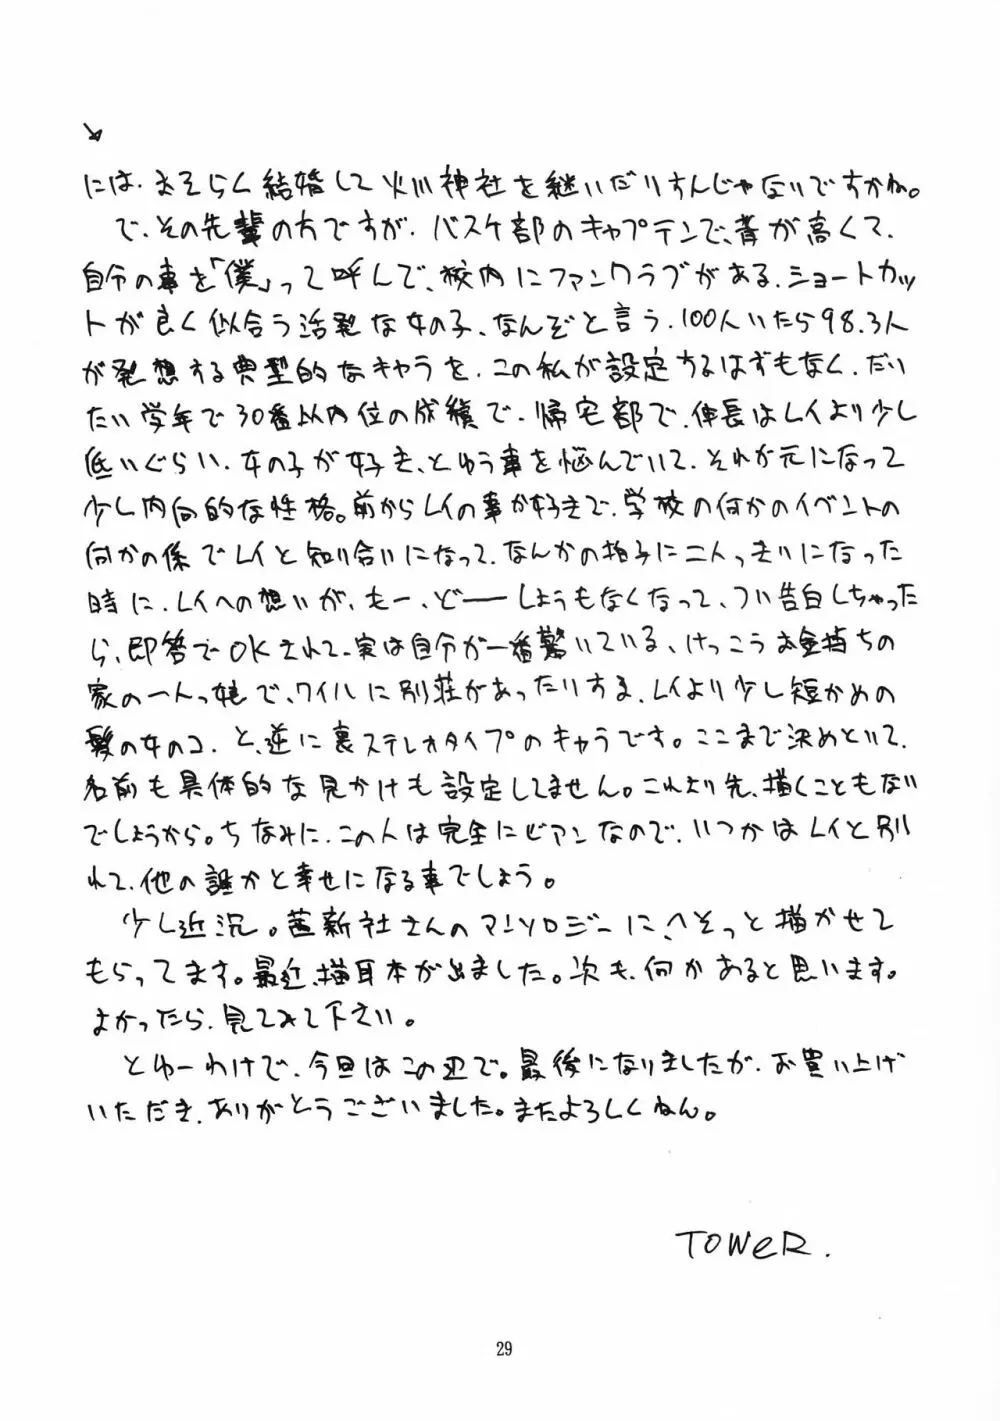 には、おそらく結婚して火川神社を継いだりすんじゃないですかね。
で、その先輩の方ですが、バスケ部のキャプテンで、背が高くて、
自分の事を「僕」って呼んで、校内にファンクラブがある、ショートカッ
トが良く似合う活発な女の子、なんぞと言う、100人いたら98.3人
が発想する典型的なキャラを、この私が設定するはずもなく、だい
たい学年で30番以内位の成績で、帰宅部で、伸長はレイより少し
低いぐらい、女の子が好き、とゆう事を悩んでいて、それが元になって
少し内向的な性格。前からレイの事が好きで、学校の何かのイベントの
何かの係でレイと知り合いになって、なんかの拍子に二人っきりになった
時に、レイへの想いが、もー、どーーしようもなくなって、つい告白しちゃった
ら、即答でOKされて、実は自分が一番驚いている、けっこうお金持ちの
家の一人っ娘で、ワイハに別荘があったりする、レイより少し短かめの
髪の女のコ、と、逆に裏ステレオタイプのキャラです。ここまで決めといて、
名前も具体的な見かけも設定してません。これより先、描くこともない
でしょうから。ちなみに、この人は完全にビアンなので、いつかはレイと別
れて、他の誰かと幸せになる事でしょう。
少し近況。茜新社さんのアンソロジーに、へそっと描かせて
もらってます。最近、描耳本が出ました。次も、何かあると思います。
よかったら、見てみて下さい。
とゆーわけで、今回はこの辺で。最後になりましたが、お買い上げ
いただき、ありがとうございました。またよろしくねん。
TOWeR.
29